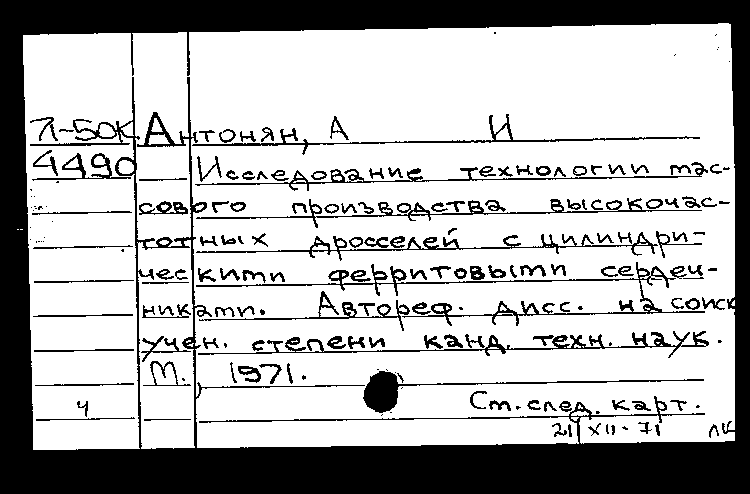 Л-50К Антонян, А И
4490 Исследование технологии мас-
сового производства высокочас-
тотных дросселей с цилиндри-
ческими ферритовыми сердеч-
никами. Автореф. дисс. на соиск
учен. степени канд. техн. наук.
М., 1971.
4 Ст. след. карт.
21/XII-71 ЛК